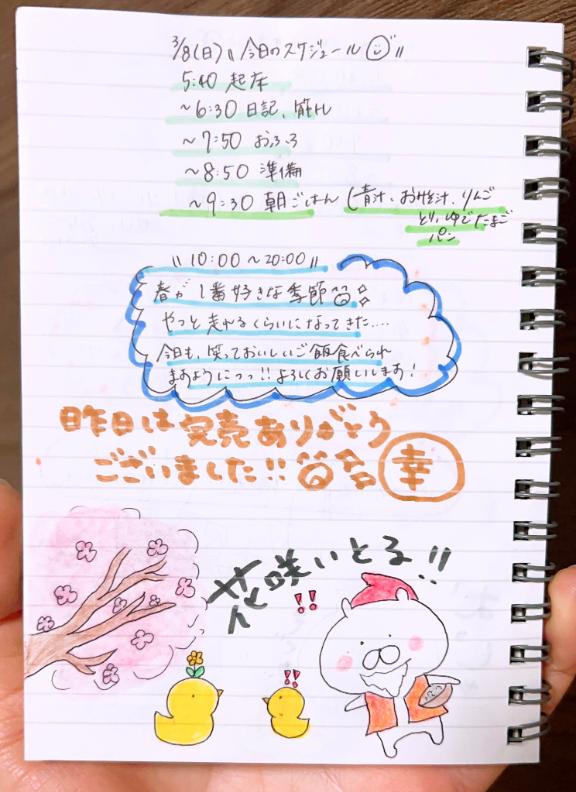 3/8(日) \\ 今日のスケジュール //
5:40 起床
~6:30 日記、筋トレ
~7:50 おふろ
~8:50 準備
~9:30 朝ごはん (青汁、おみそ汁、りんご
とり、ゆでたまご
パン
\\ 10:00~20:00 //
春が1番好きな季節
やっと走れるくらいになってきた....
今日も、笑っておいしいご飯食べられ
ますようにっっ!! よろしくお願いします!
昨日は完売ありがとう
ございました!! 幸
花咲いとる!!
!!
!!